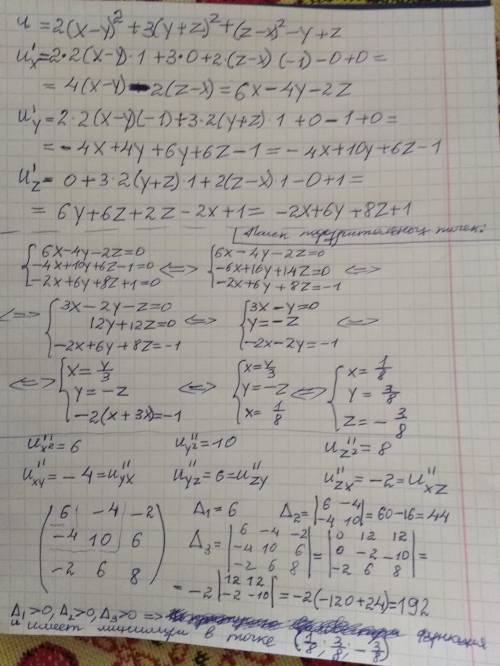 u = 2(x-y)² + 3(y+z)² + (z-x)² - y + z
u'x = 2·2(x-y)·1 + 3·0 + 2·(z-x)·(-1) - 0 + 0 =
= 4(x-y) - 2(z-x) = 6x - 4y - 2z
u'y = 2·2(x-y)(-1) + 3·2(y+z)·1 + 0 - 1 + 0 =
= -4x + 4y + 6y + 6z - 1 = -4x + 10y + 6z - 1
u'z = 0 + 3·2(y+z)·1 + 2(z-x)·1 - 0 + 1 =
= 6y + 6z + 2z - 2x + 1 = -2x + 6y + 8z + 1
Поиск точек:
{6x-4y-2z=0 {6x-4y-2z=0
{-4x+10y+6z-1=0 <=> {-6x+16y+14z=0 <=>
{-2x+6y+8z+1=0 {-2x+6y+8z=-1
{3x-2y-z=0 {3x-y=0
<=> {12y+12z=0 <=> {y=-z <=>
{-2x+6y+8z=-1 {-2x-2y=-1
{x=y/3 {x=y/3 {x=1/8
<=> {y=-z <=> {y=-z <=> {y=3/8
{-2(x+3x)=-1 {x=1/8 {z=-3/8
u''x²=6 u''y²=10 u''z²=8
u''xy=-4=u''yx u''yz=6=u''zy u''zx=-2=u''xz
(6 -4 -2) Δ₁=6 Δ₂=|6 -4; -4 10|=60-16=44
(-4 10 6) Δ₃=|6 -4 -2; -4 10 6; -2 6 8|=|0 12 12; 0 -2 -10; -2 6 8|=
(-2 6 8)
= -2|12 12; -2 -10| = -2(-120+24)=192
Δ₁>0, Δ₂>0, Δ₃>0 => функция
u имеет минимум в точке (1/8; 3/8; -3/8)